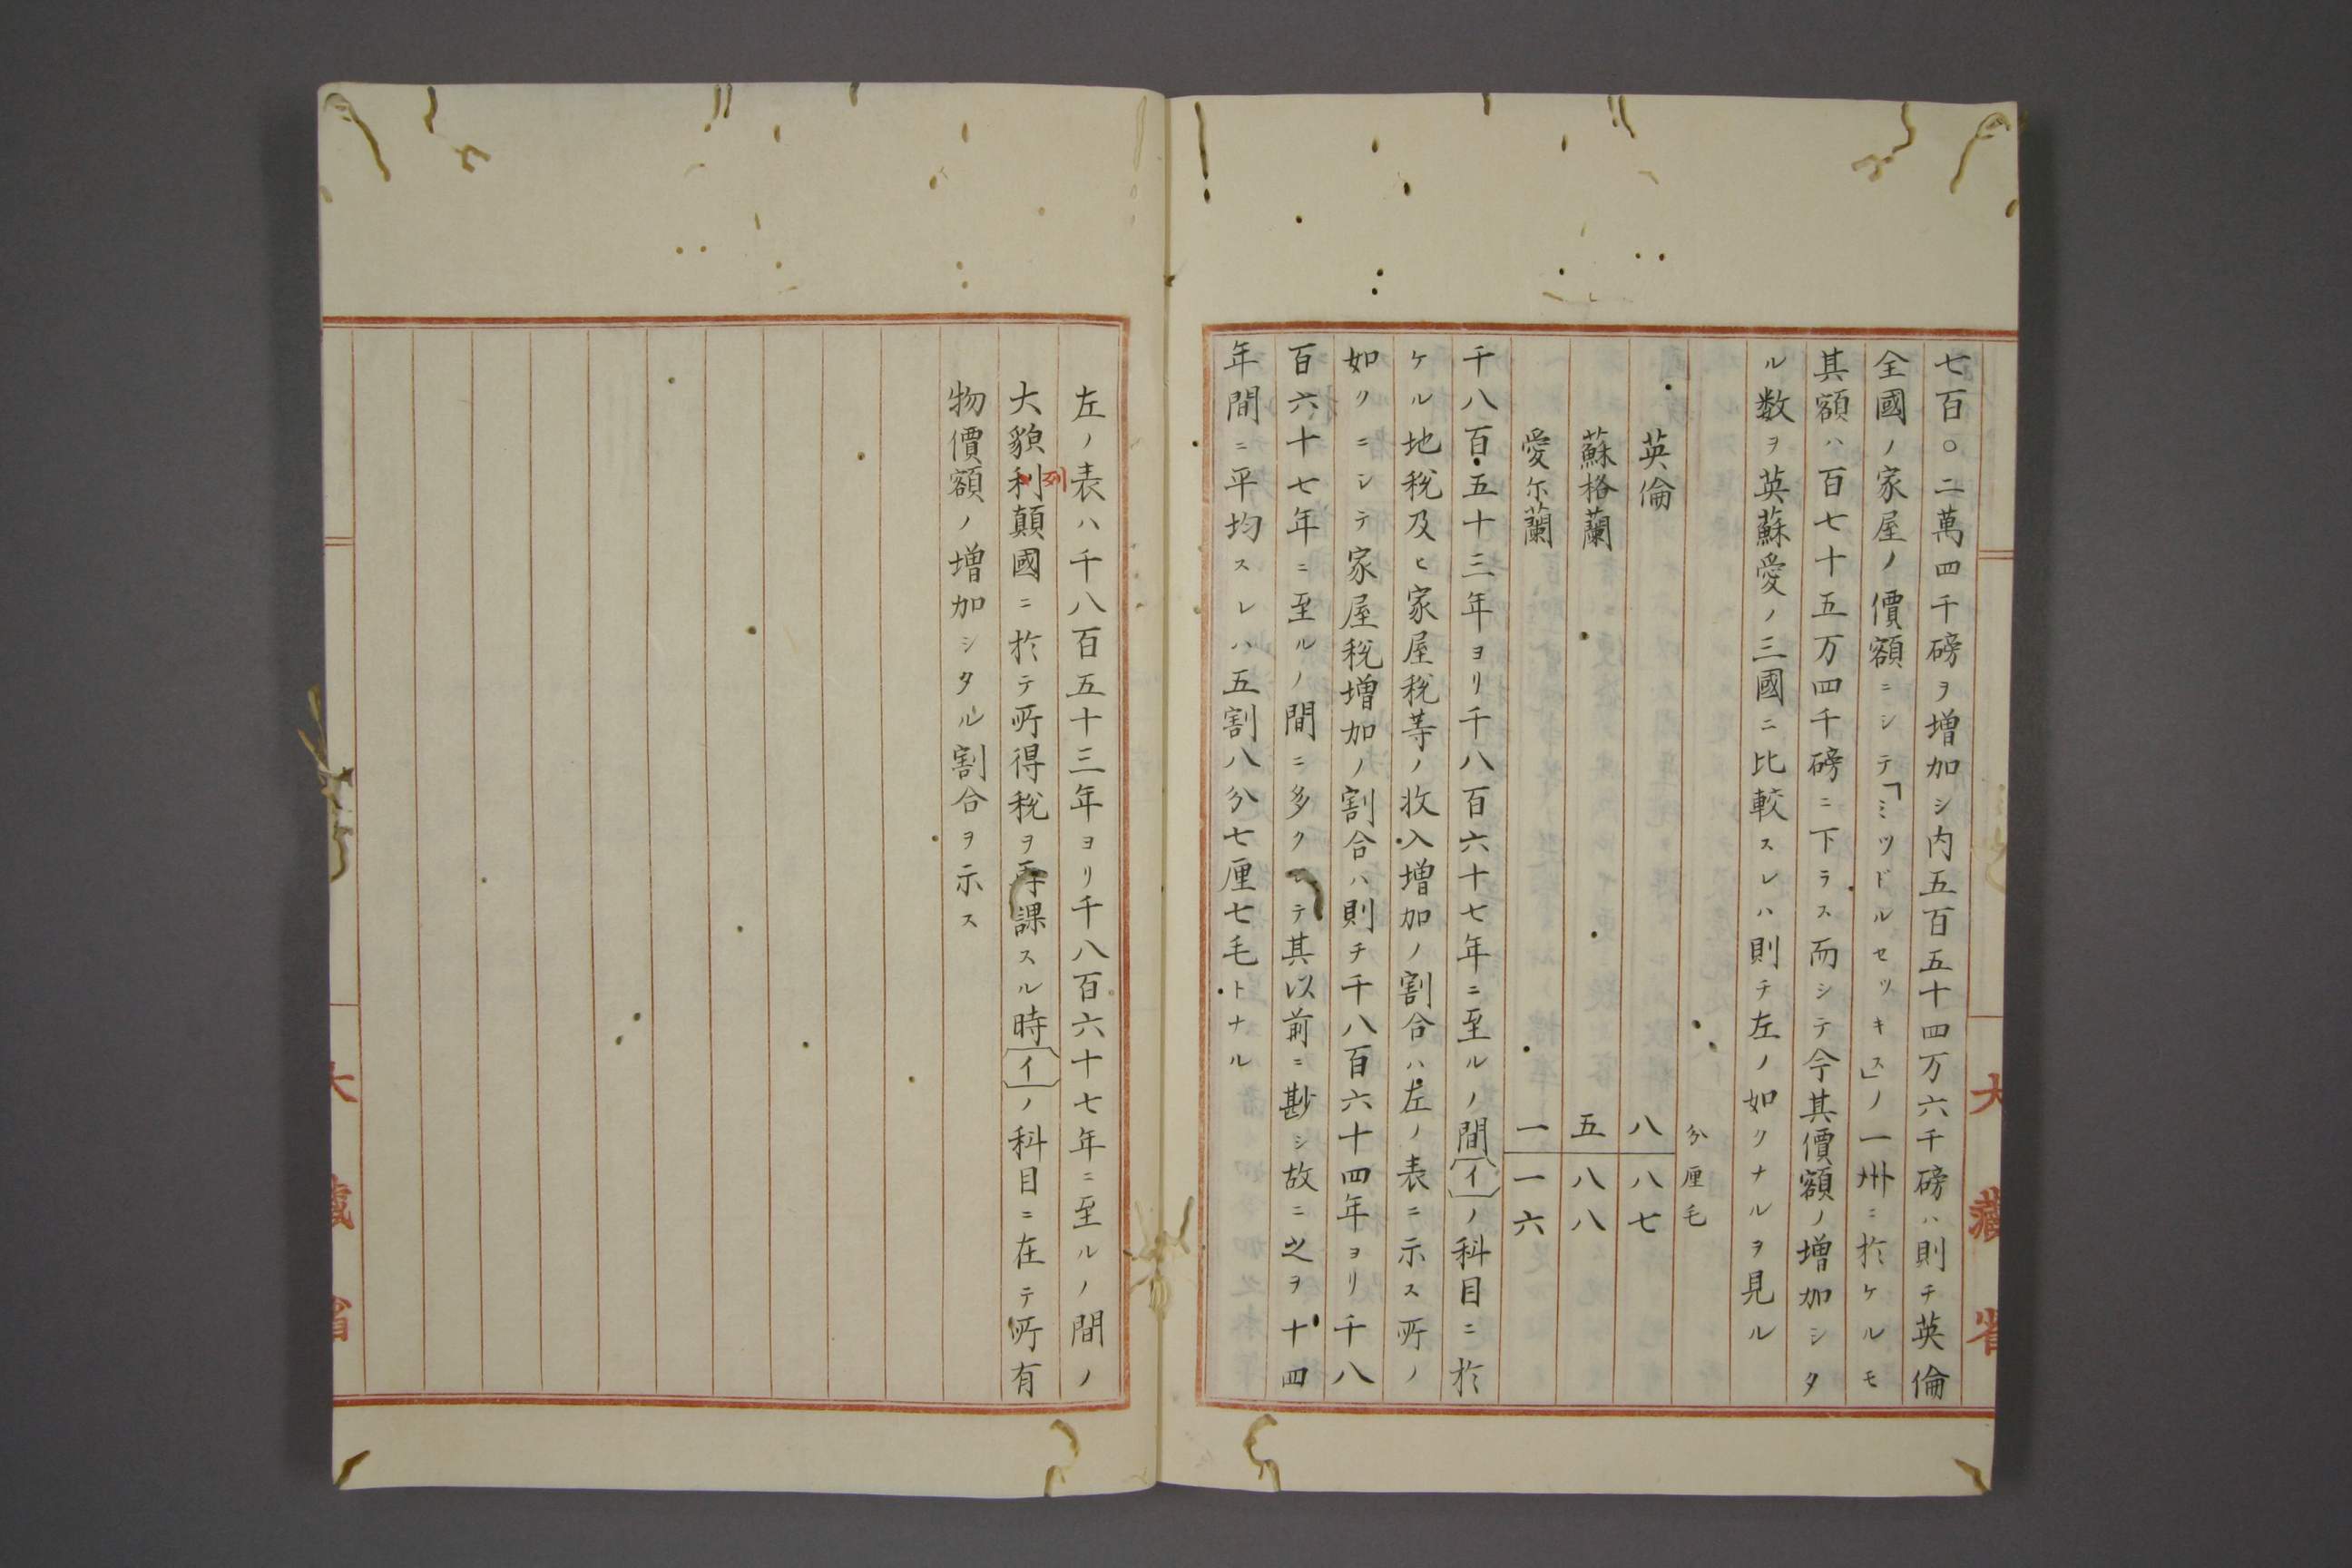 七百〇二萬四千磅ヲ増加シ内五百五十四万六千磅ハ則チ英倫
全國ノ家屋ノ價額ニシテ「ミツドルセツキス」ノ一州ニ於ケルモ
其額ハ百七十五万四千磅ニ下ラス而シテ今其價額ノ増加シタ
ル数ヲ英蘇愛ノ三國ニ比較スレハ則チ左ノ如クナルヲ見ル
分厘毛
英倫 八八七
蘇格蘭 五八八
愛尓蘭 一一六
千八百五十三年ヨリ千八百六十七年ニ至ルノ間〔イ〕ノ科目ニ於
ケル地税及ヒ家屋税等ノ收入増加ノ割合ハ左ノ表ニ示ス所ノ
如クニシテ家屋税増加ノ割合ハ則チ千八百六十四年ヨリ千八
百六十七年ニ至ルノ間ニ多クシテ其以前ニ尠シ故ニ之ヲ十四
年間ニ平均スレハ五割八分七厘七毛トナル
大藏省
左ノ表ハ千八百五十三年ヨリ千八百六十七年ニ至ルノ間ノ
大貌利顛國ニ於テ所得税ヲ再課スル時〔イ〕ノ科目ニ在テ所有
列
物價額ノ増加シタル割合ヲ示ス
大藏省